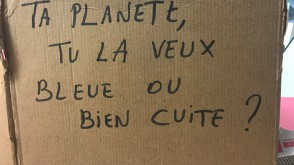 TA PLANETE,
TU LA VEUX
BLEUE OU
BIEN CUITE ?